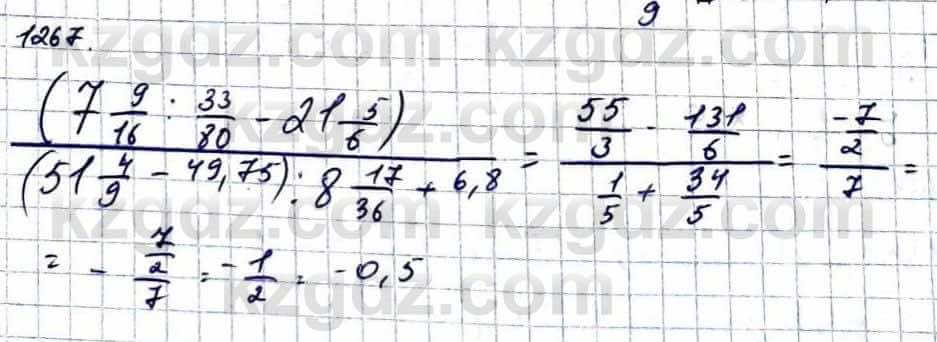 9
1267.
(7 9/16 : 33/80 - 21 5/6) / ((51 4/9 - 49,75) : 8 17/36 + 6,8) = (55/3 - 131/6) / (1/5 + 34/5) = (-7/2) / 7 =
= - (7/2) / 7 = - 1/2 = -0,5
kzgdz.com kzgdz.com
kzgdz.com kzgdz.com
kzgdz.com kzgdz.com
kzgdz.com